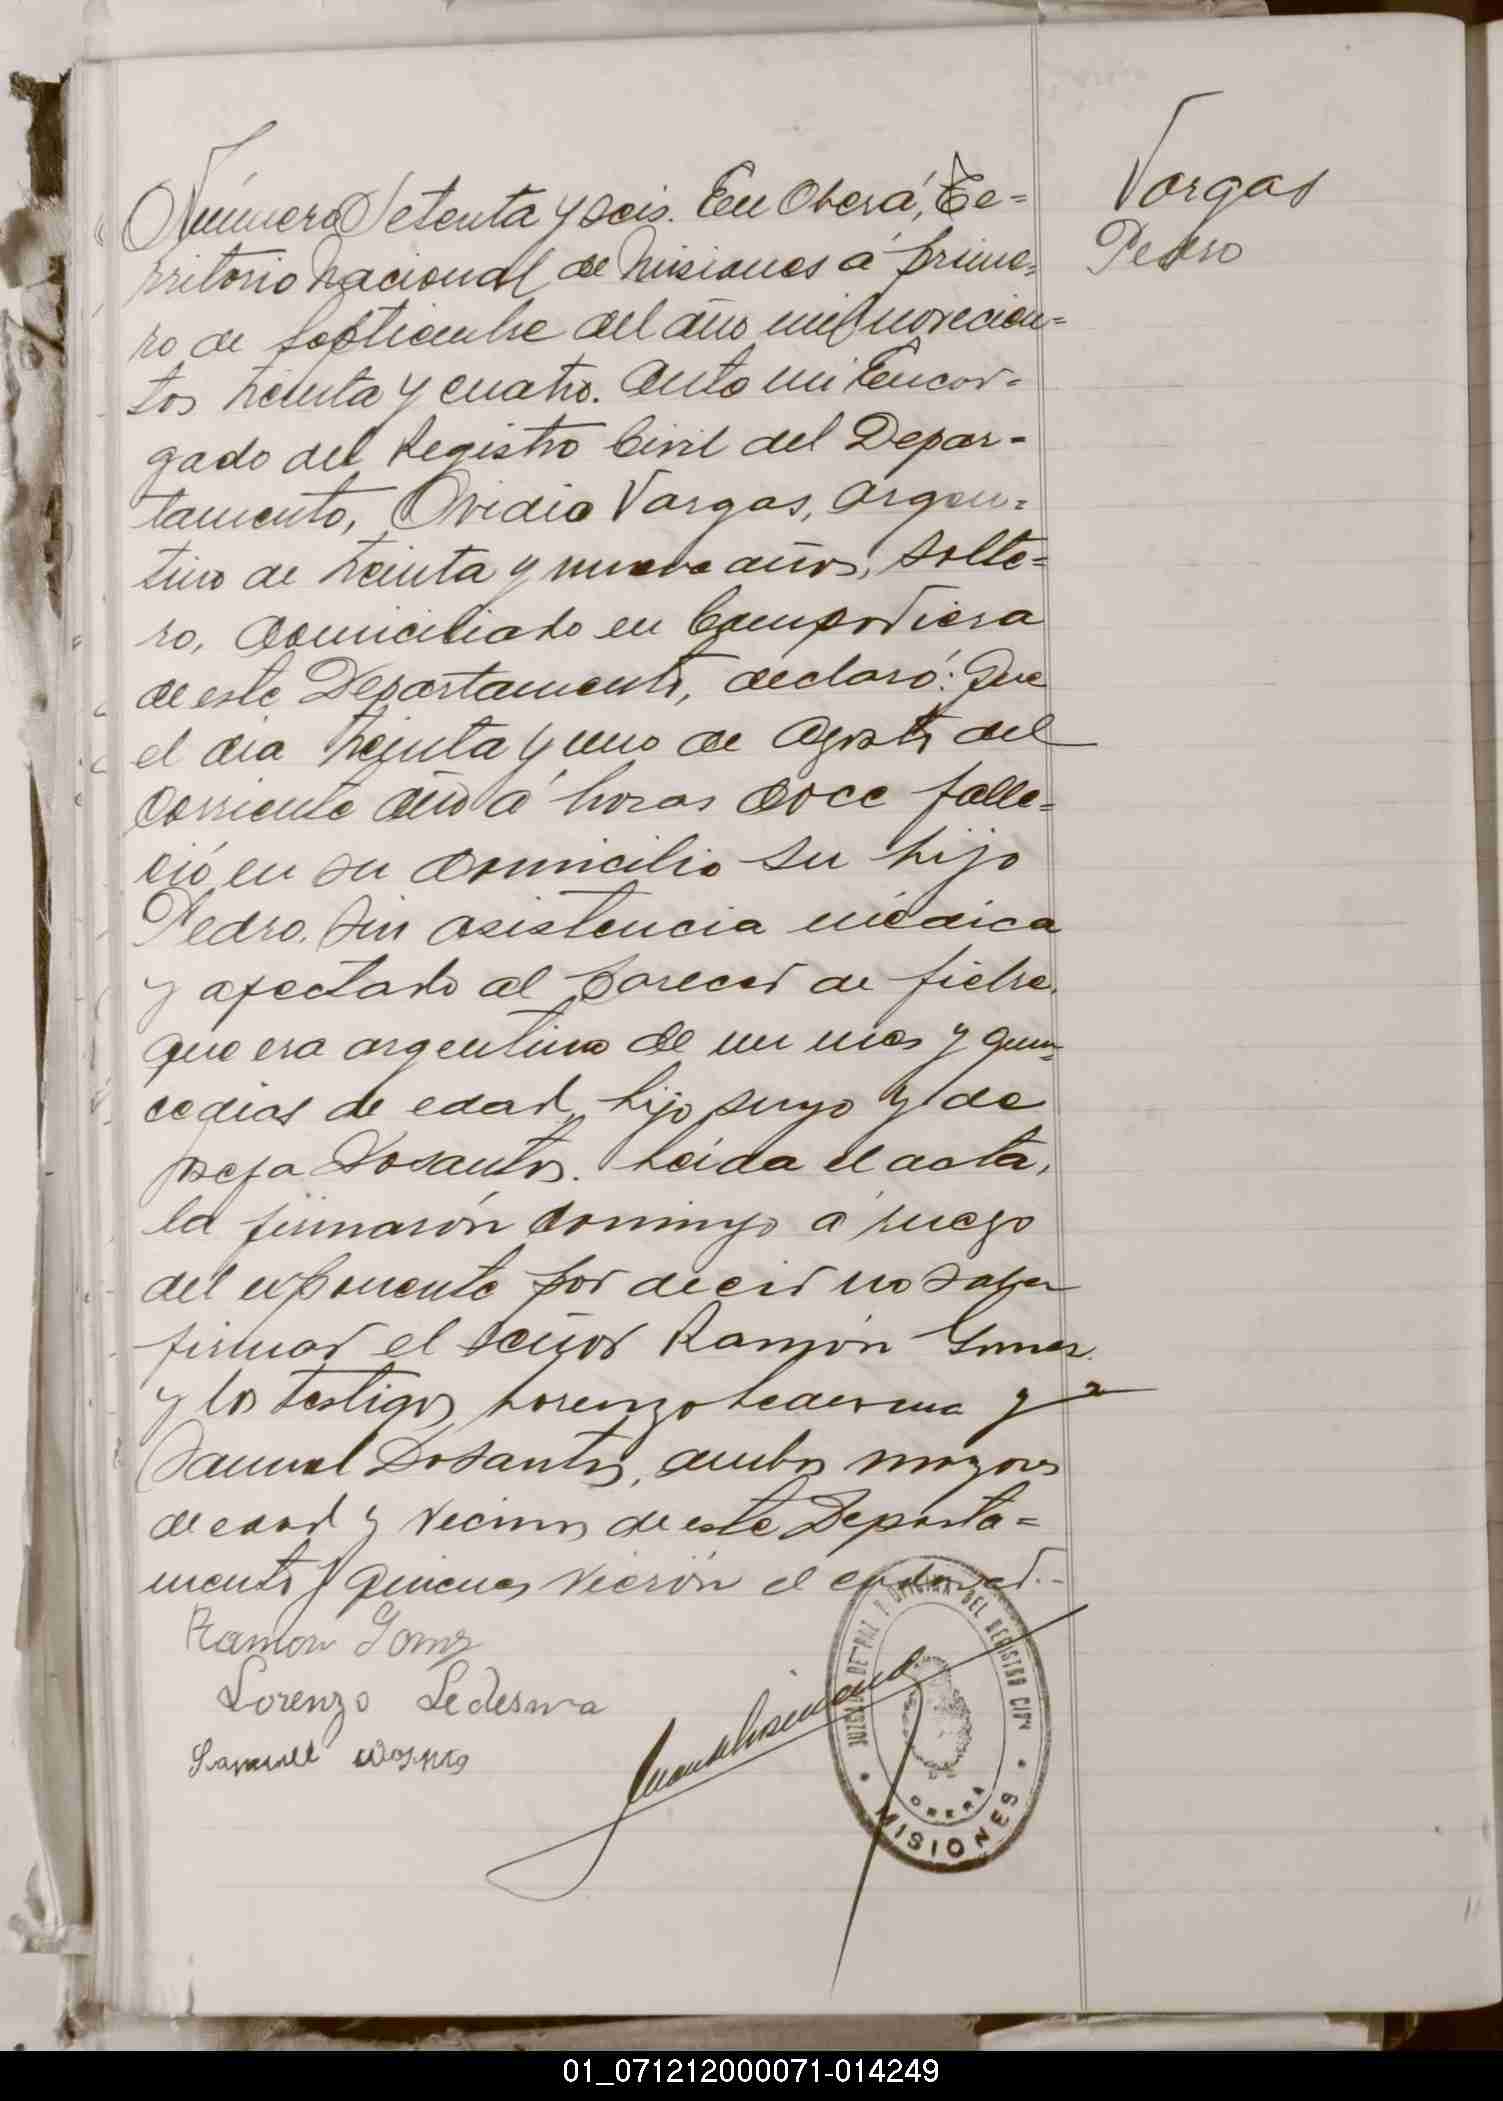 Vargas
Pedro
Número Setenta y seis. En Oberá, Te=
rritorio Nacional de Misiones á prime=
ro de Septiembre del año mil novecien=
tos treinta y cuatro. Ante mi Encar=
gado del Registro Civil del Depar=
tamento, Ovidio Vargas, argen=
tino de treinta y nueve años, solte=
ro, domiciliado en Campo Viera
de este Departamento, declaró: Que
el dia treinta y uno de Agosto del
corriente año á horas doce falle=
ció en su domicilio su hijo
Pedro. Sin asistencia médica
y afectado al parecer de fiebre,
que era argentino de un mes y quin=
ce dias de edad, hijo suyo y de
Dosantos. Leida el acta,
la firmarón conmigo á ruego
del exponente por decir no saber
firmar el señor Ramón Gomez
y los testigos Lorenzo Ledesma y
Samuel Dosantos, ambos mayores
de edad y vecinos de este Departa=
mento y quienes vierón el cadaver.-
Ramon Gomez
Lorenzo Ledesma
JUZGADO DE PAZ Y OFICINA DEL REGISTRO CIVIL
OBERA
MISIONES
01_071212000071-014249